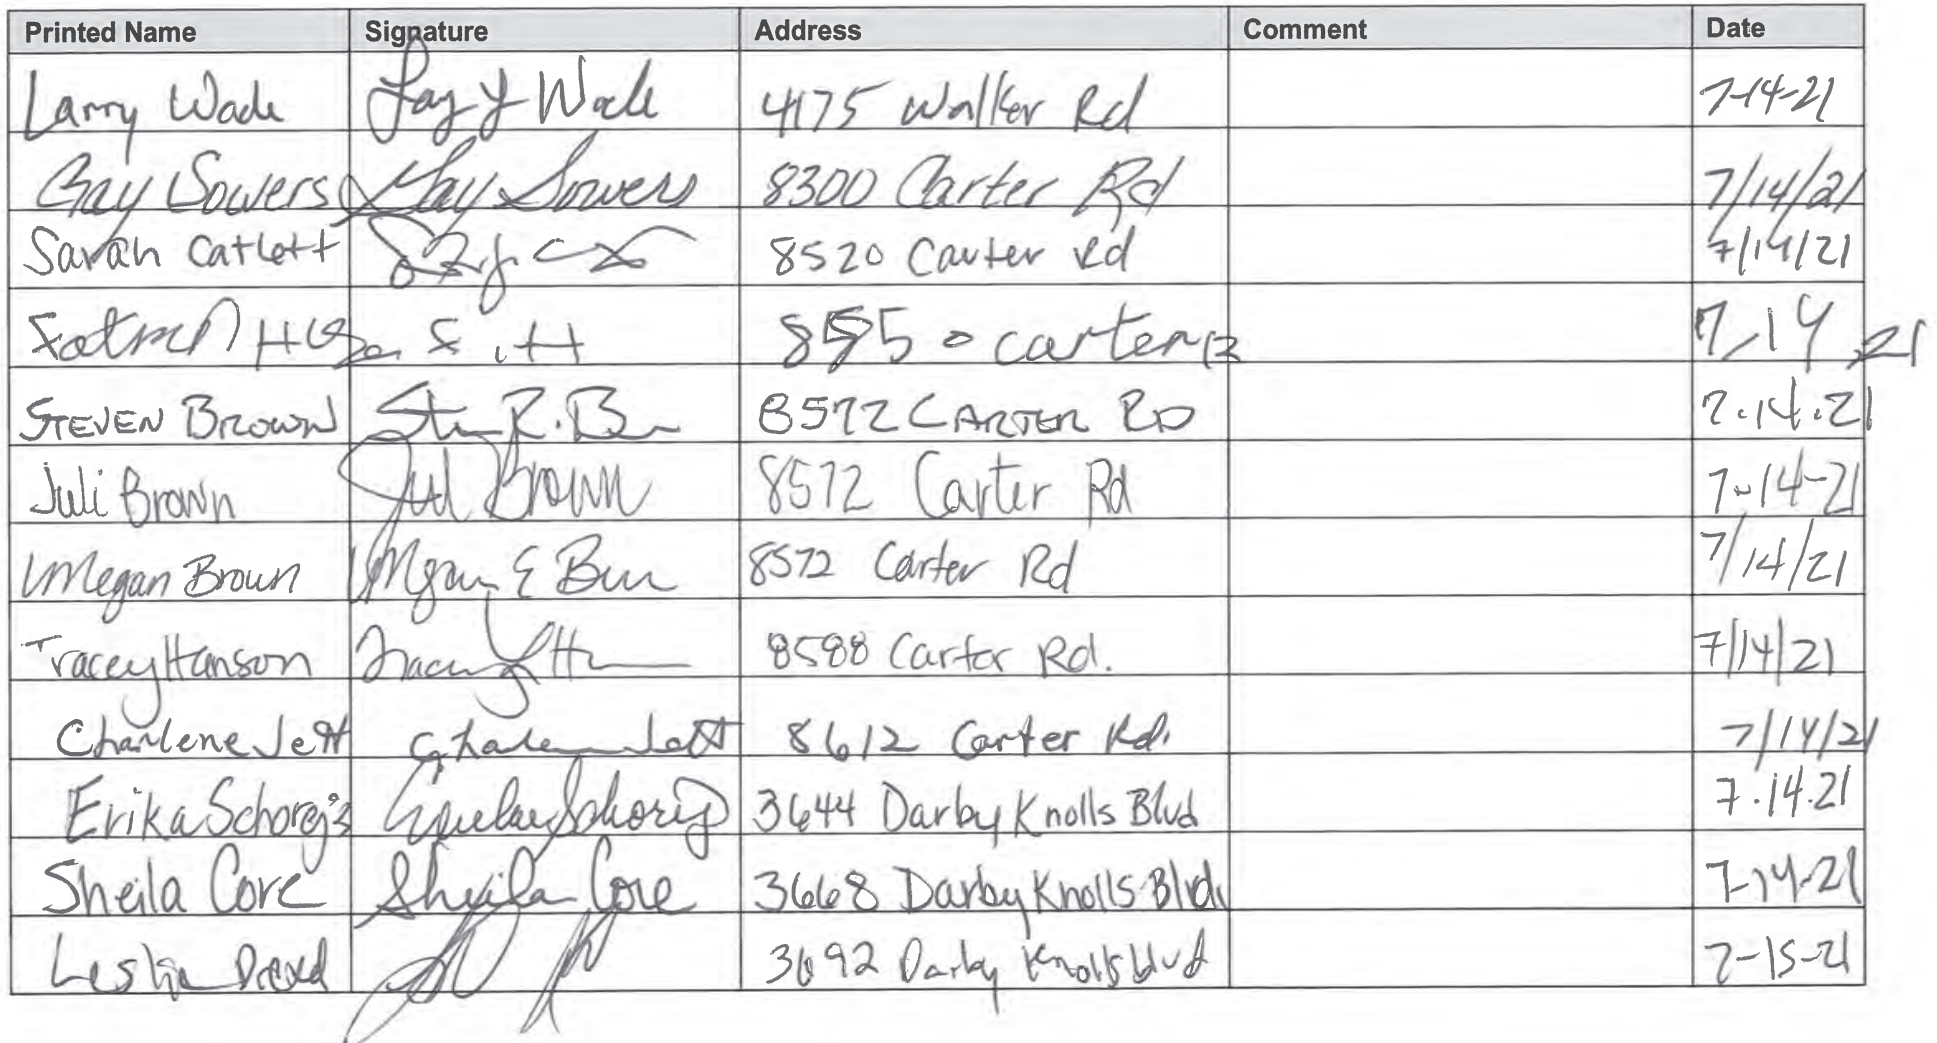 Printed Name Signature Address Comment Date
Larry Wade Larry J Wade 4175 Walker Rd 7-14-21
Gay Sowers Gay Sowers 8300 Carter Rd 7/14/21
Sarah Catlett 8520 Carter Rd 7/14/21
F . H 8550 carter R 7.14.21
STEVEN BROWN R. 8572 CARTER RD 7.14.21
Juli Brown Juli Brown 8572 Carter Rd 7-14-21
Megan Brown Megan E Brown 8572 Carter Rd 7/14/21
Tracey Hanson Tracey 8588 Carter Rd. 7/14/21
Charlene Jett Charlene Jett 8612 Carter Rd. 7/14/21
Erika 3644 Darby Knolls Blvd 7.14.21
Sheila Core Sheila Core 3668 Darby Knolls Blvd. 7-14-21
Leslie 3692 Darby Knolls blvd 7-15-21